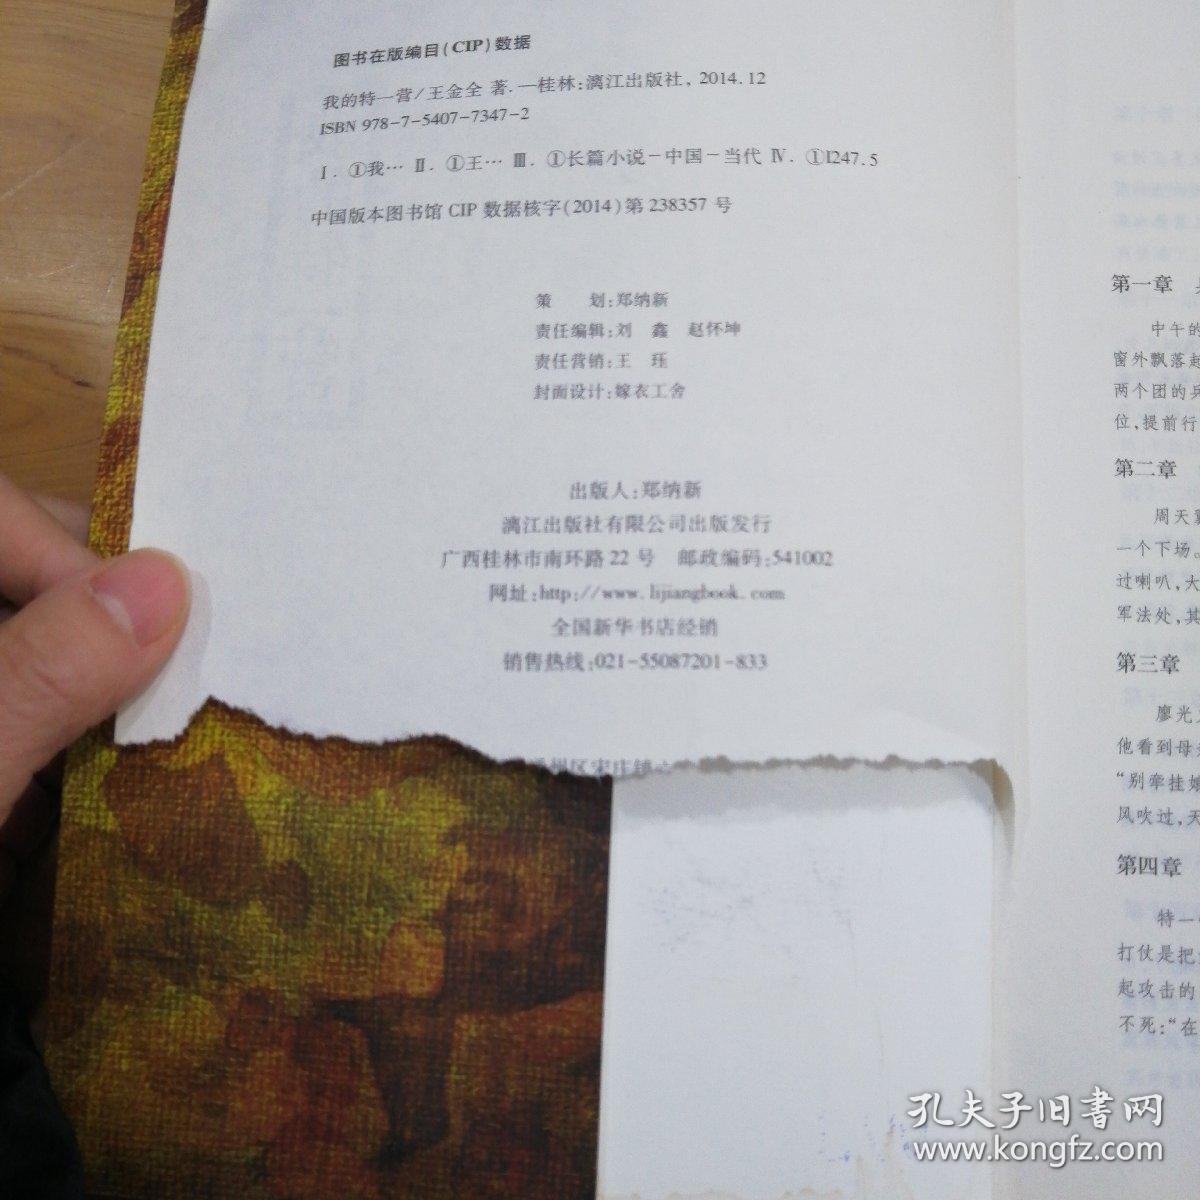 图书在版编目(CIP)数据
我的特一营/王金全 著.—桂林:漓江出版社, 2014.12
ISBN 978-7-5407-7347-2
Ⅰ. ①我… Ⅱ. ①王… Ⅲ. ①长篇小说-中国-当代 Ⅳ. ①I247.5
中国版本图书馆 CIP 数据核字(2014)第 238357 号
策 划:郑纳新
责任编辑:刘 鑫 赵怀坤
责任营销:王 珏
封面设计:嫁衣工舍
出版人:郑纳新
漓江出版社有限公司出版发行
广西桂林市南环路 22 号 邮政编码:541002
网址:http://www.lijiangbook.com
全国新华书店经销
销售热线:021-55087201-833
州区宋庄镇
第一章
中午的
窗外飘落起
两个团的兵
位,提前行
第二章
周天翼
一个下场。
过喇叭,大
军法处,其
第三章
廖光
他看到母亲
“别牵挂娘
风吹过,天
第四章
特一
打仗是把
起攻击的
不死:“在
孔夫子旧书网
www.kongfz.com